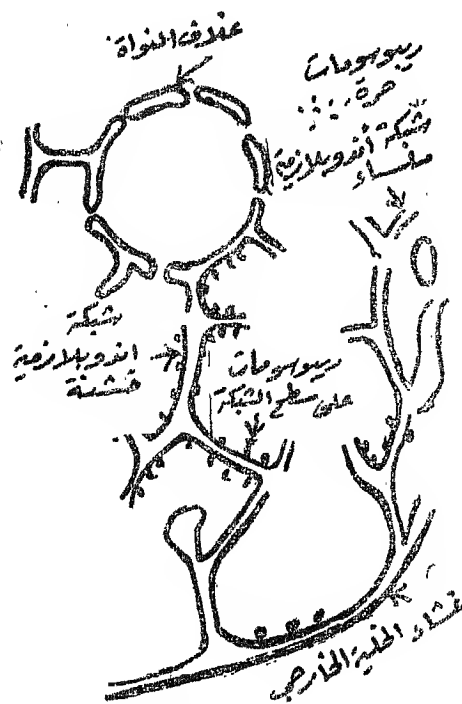 غلاف النواة
ريبوسومات
حرة
شبكة أندوبلازمية
ملساء
شبكة
اندوبلازمية
خشنة
ريبوسومات
على سطح الشبكة
غشاء الخلية الخارجى